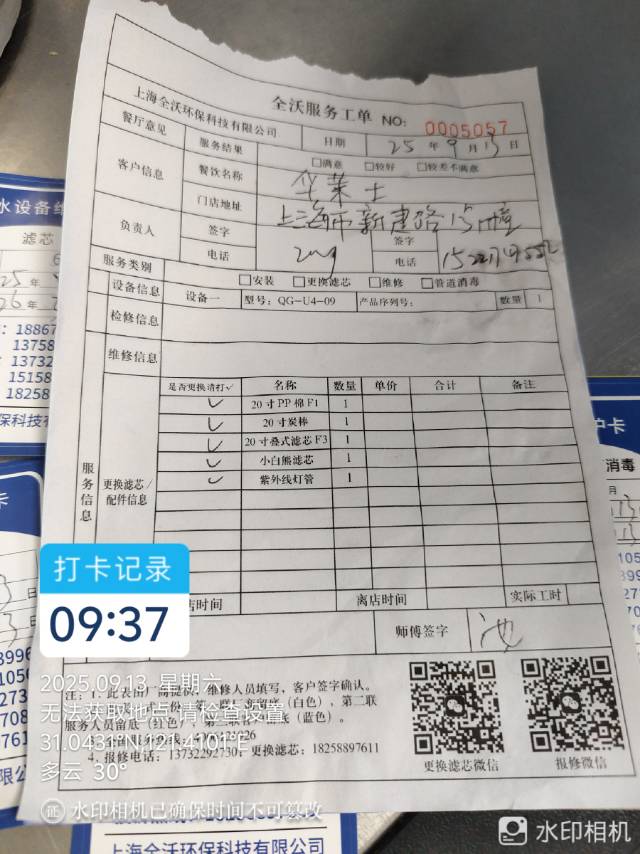 全沃服务工单 NO: 0005057
上海全沃环保科技有限公司 日期 25 年 9 月 13 日
餐厅意见 服务结果 □满意 □较好 □较差不满意
客户信息 餐饮名称 华莱士
门店地址 上海市新建路
负责人 签字 签字
电话 电话
服务类别 □安装 □更换滤芯 □维修 □管道消毒
设备信息 设备一 型号: QG-U4-09 产品序列号: 数量 1
检修信息
维修信息
服务信息
更换滤芯/配件信息
是否更换请打✓ 名称 数量 单价 合计 备注
✓ 20寸PP棉F1 1
✓ 20寸炭棒 1
✓ 20寸叠式滤芯F3 1
✓ 小白熊滤芯 1
✓ 紫外线灯管 1
店时间 离店时间 实际工时
师傅签字
打卡记录
09:37
2025.09.13 星期六
无法获取地点,请检查设置
多云 30°
注: 1. 此表由厂商提供, 维修人员填写, 客户签字确认。
(白色)、第二联
服务人员留底(红色)、
底(蓝色)。
4. 报修电话: 13732292730; 更换滤芯: 18258897611
更换滤芯微信 报修微信
证 水印相机已确保时间不可篡改
水印相机
水设备维
滤芯
25年
26年
18867
13758
13732
15158
保科技有
护卡
消毒
月
上海全沃环保科技有限公司